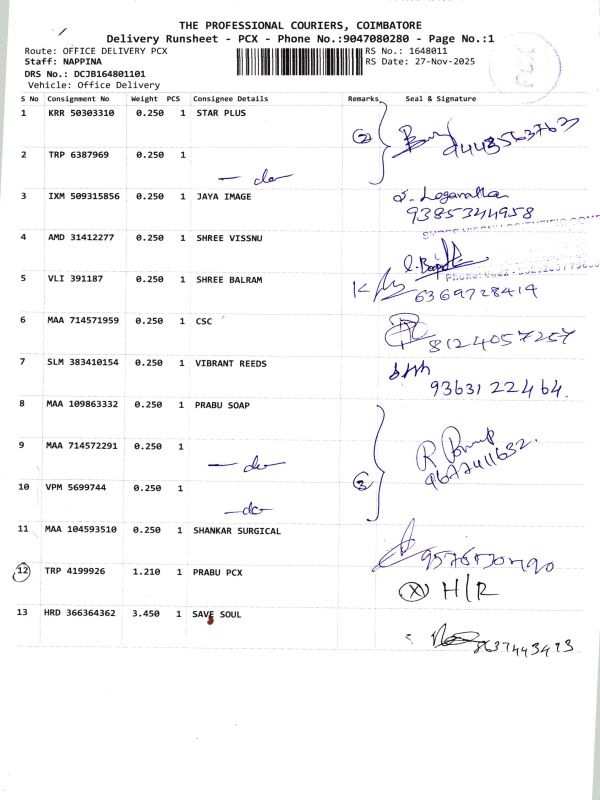 THE PROFESSIONAL COURIERS, COIMBATORE
Delivery Runsheet - PCX - Phone No.:9047080280 - Page No.:1
Route: OFFICE DELIVERY PCX
Staff: NAPPINA
DRS No.: DCJB164801101
Vehicle: Office Delivery
RS No.: 1648011
RS Date: 27-Nov-2025
PCX
S No Consignment No Weight PCS Consignee Details Remarks Seal & Signature
1 KRR 50303310 0.250 1 STAR PLUS 2
2 TRP 6387969 0.250 1 — do —
3 IXM 509315856 0.250 1 JAYA IMAGE
9385344958
4 AMD 31412277 0.250 1 SHREE VISSNU
5 VLI 391187 0.250 1 SHREE BALRAM
6369728414
6 MAA 714571959 0.250 1 CSC
8124057257
7 SLM 383410154 0.250 1 VIBRANT REEDS
9363122464.
8 MAA 109863332 0.250 1 PRABU SOAP
9 MAA 714572291 0.250 1 — do —
10 VPM 5699744 0.250 1 — do — 3
11 MAA 104593510 0.250 1 SHANKAR SURGICAL
12 TRP 4199926 1.210 1 PRABU PCX X H/R
13 HRD 366364362 3.450 1 SAVE SOUL
8637443493